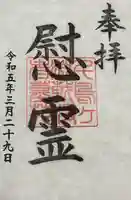 奉拝
慰霊
令和五年三月二十九日